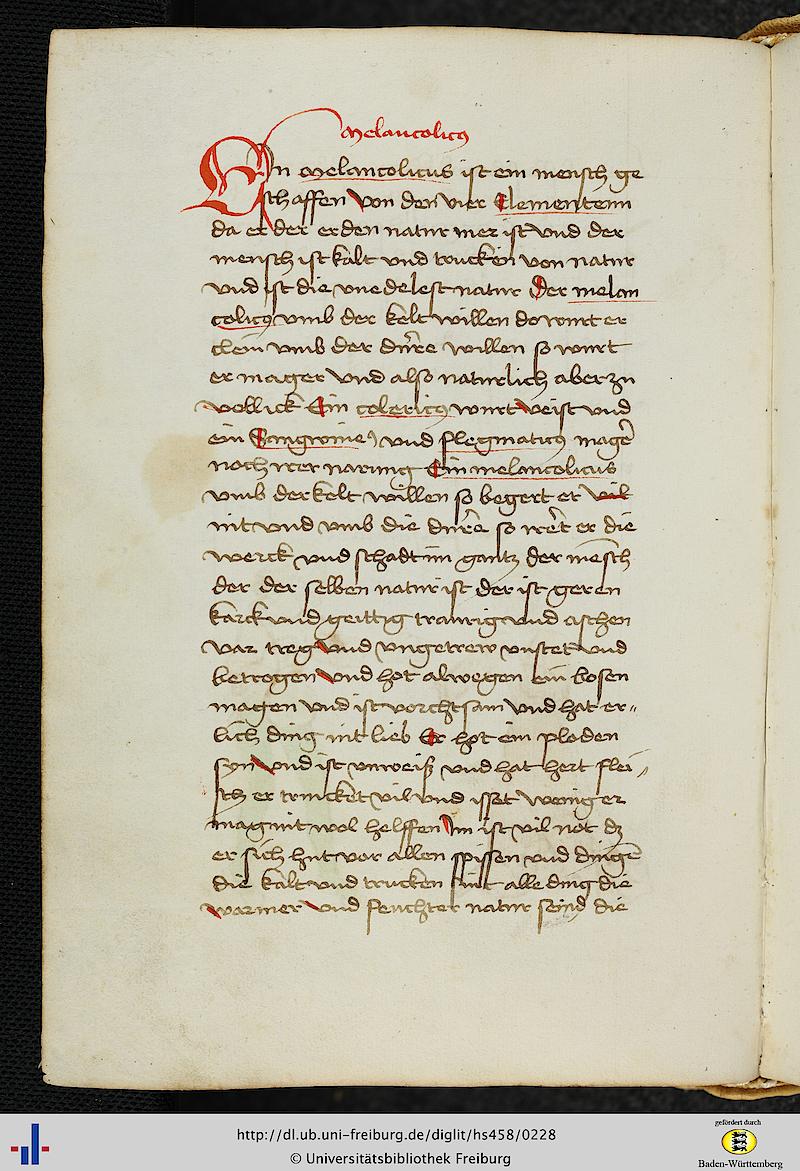 Melancolicus
Ein Melancolicus ist ein mensch ge
schaffen von den vier Elementenn
da er der erden natur mer ist vnd der
mensch ist kalt vnd trucken von natur
vnd ist die vnedelest natur Der melan
colicus vmb der kelt willen do wurt er
clein vmb der durre willen so wurt
er mager vnd also naturlich aber zu
vollick Ein colericus wurt veist vnd
ein Sangwineus vnd flegmaticus mager
noch irer narung Ein melancolicus
vmb der kelt willen so begert er vil
nit vnd vmb die durre so wert er die
werck vnd schadt im gantz der mensch
der der selben natur ist der ist geren
karck vnd geittig traurig vnd aschen
var treg vnd vngetrew vnstet vnd
betrogen vnd hot alwegen ein bosen
magen vnd ist vorchtsam vnd hat er
lich ding nit lieb Er hot ein ploden
syn vnd ist vnweiß vnd hat hert flei
sch er trincket vil vnd isset weniger
mag nit wol helffen Im ist vil not dz
er sich hut vor allen spissen vnd dingen
die kalt vnd trucken sint alle ding die
warmer vnd feuchter natur seind die
http://dl.ub.uni-freiburg.de/diglit/hs458/0228
© Universitätsbibliothek Freiburg
gefördert durch
Baden-Württemberg